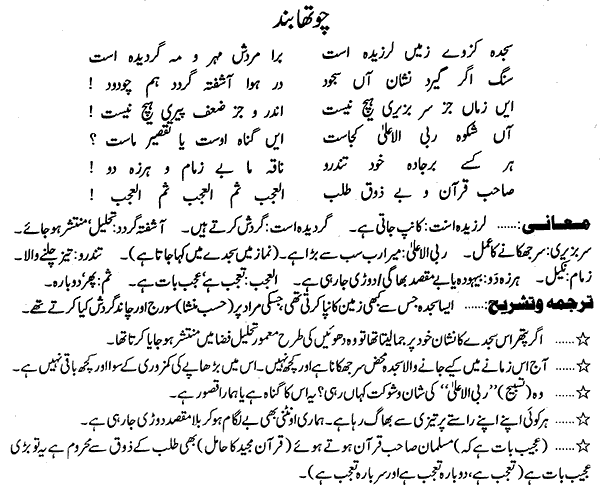 چوتھا بند
سجدہ کزوے زمیں لرزیدہ است برا مردش مہر و مہ گردیدہ است
سنگ اگر گیرد نشان آں سجود در ہوا آشفتہ گردد ہم چودود !
ایں زماں جز سر بزیری ہیچ نیست اندر و جز ضعف پیری ہیچ نیست !
آں شکوہ ربی الاعلیٰ کجاست ایں گناہ اوست یا تقصیر ماست ؟
ہر کسے برجادہ خود تندرو ناقہ ما بے زمام و ہرزہ دو !
صاحب قرآن و بے ذوق طلب العجب ثم العجب ثم العجب !
معانی:...... لرزیدہ است: کانپ جاتی ہے۔ گردیدہ است: گردش کرتے ہیں۔ آشفتہ گردد: تحلیل‘ منتشر ہو جائے۔
سر بزیری: سر جھکانے کا عمل۔ ربی الاعلیٰ: میرا رب سب سے بڑا ہے۔ (نماز میں سجدے میں کہا جاتا ہے)۔ تندرو: تیز چلنے والا۔
زمام: نکیل۔ ہرزہ دو: بیہودہ یا بے مقصد بھاگی/دوڑی جا رہی ہے۔ العجب: تعجب ہے‘ عجب بات ہے۔ ثم: پھر‘ دوبارہ۔
ترجمہ وتشریح:...... ایسا سجدہ جس سے کبھی زمین کانپا کرتی تھی جسکی مراد پر (حسب منشا) سورج اور چاند گردش کیا کرتے تھے۔
☆...... اگر پتھر اس سجدے کا نشان خود پر جما لیتا تھا تو وہ دھوئیں کی طرح معمور تحلیل فضا میں منتشر ہو جایا کرتا تھا۔
☆...... آج اس زمانے میں کیے جانے والا سجدہ محض سر جھکانا ہے اور کچھ نہیں۔ اس میں بڑھاپے کی کمزوری کے سوا اور کچھ باقی نہیں ہے۔
☆...... وہ (تسبیح) ’’ربی الاعلیٰ‘‘ کی شان و شوکت کہاں رہی؟ یہ اس کا گناہ ہے یا ہمارا قصور ہے۔
☆...... ہر کوئی اپنے اپنے راستے پر تیزی سے بھاگ رہا ہے۔ ہماری اونٹنی بھی بے لگام ہو کر بلا مقصد دوڑی جا رہی ہے۔
☆...... (عجیب بات ہے کہ) مسلمان صاحب قرآن ہوتے ہوئے (قرآن مجید کا حامل) بھی طلب کے ذوق سے محروم ہے یہ تو بڑی
عجیب بات ہے (تعجب ہے، دوبارہ تعجب ہے اور سہ بارہ تعجب ہے)۔